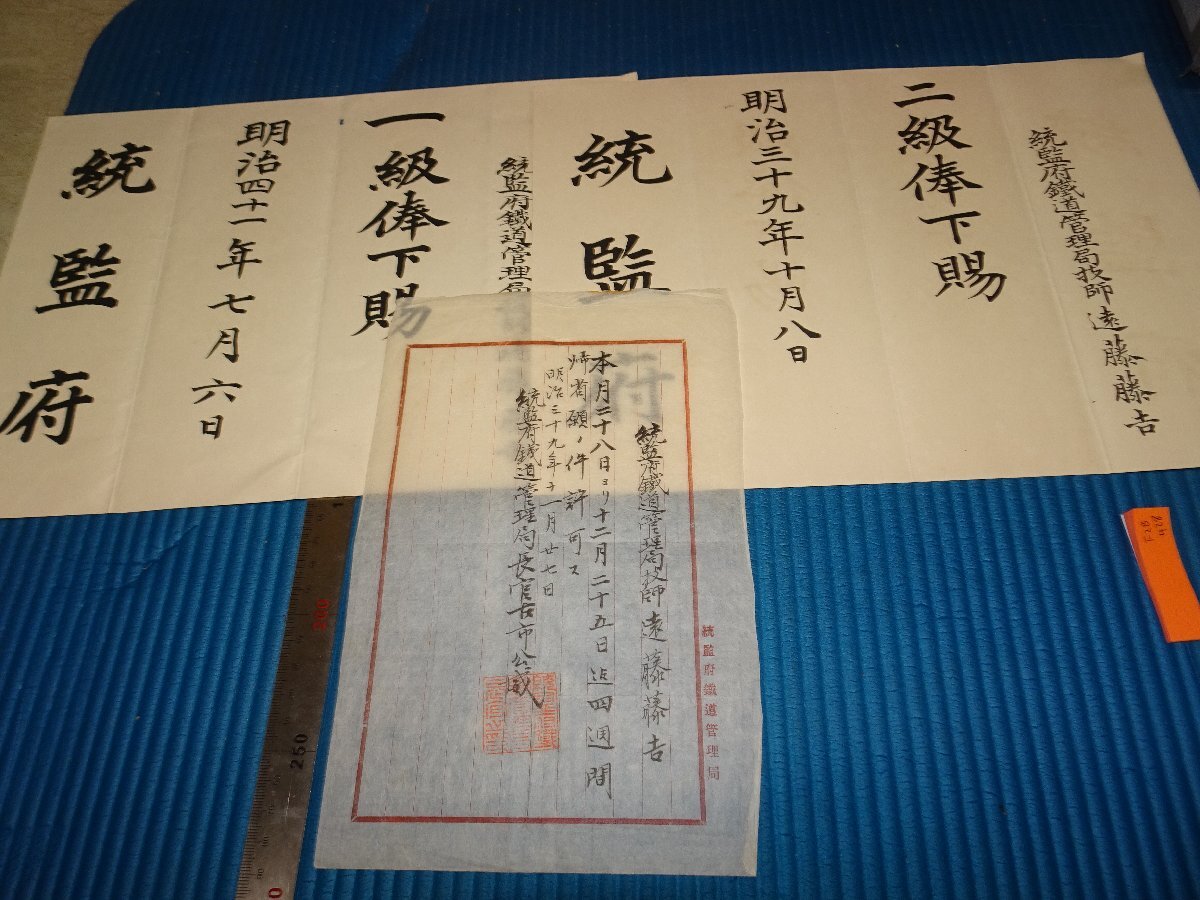 統監府鐵道管理局技師遠藤藤吉
二級俸下賜
明治三十九年十月八日
統監府
統監府鐵道管理局
一級俸下賜
明治四十一年七月六日
統監府
統監府鐵道管理局技師遠藤藤吉
本月二十八日ヨリ十二月二十五日迠四週間
帰省願ノ件許可ス
明治三十九年十一月廿七日
統監府鐵道管理局長官古市公威
統監府鐵道管理局
250
200